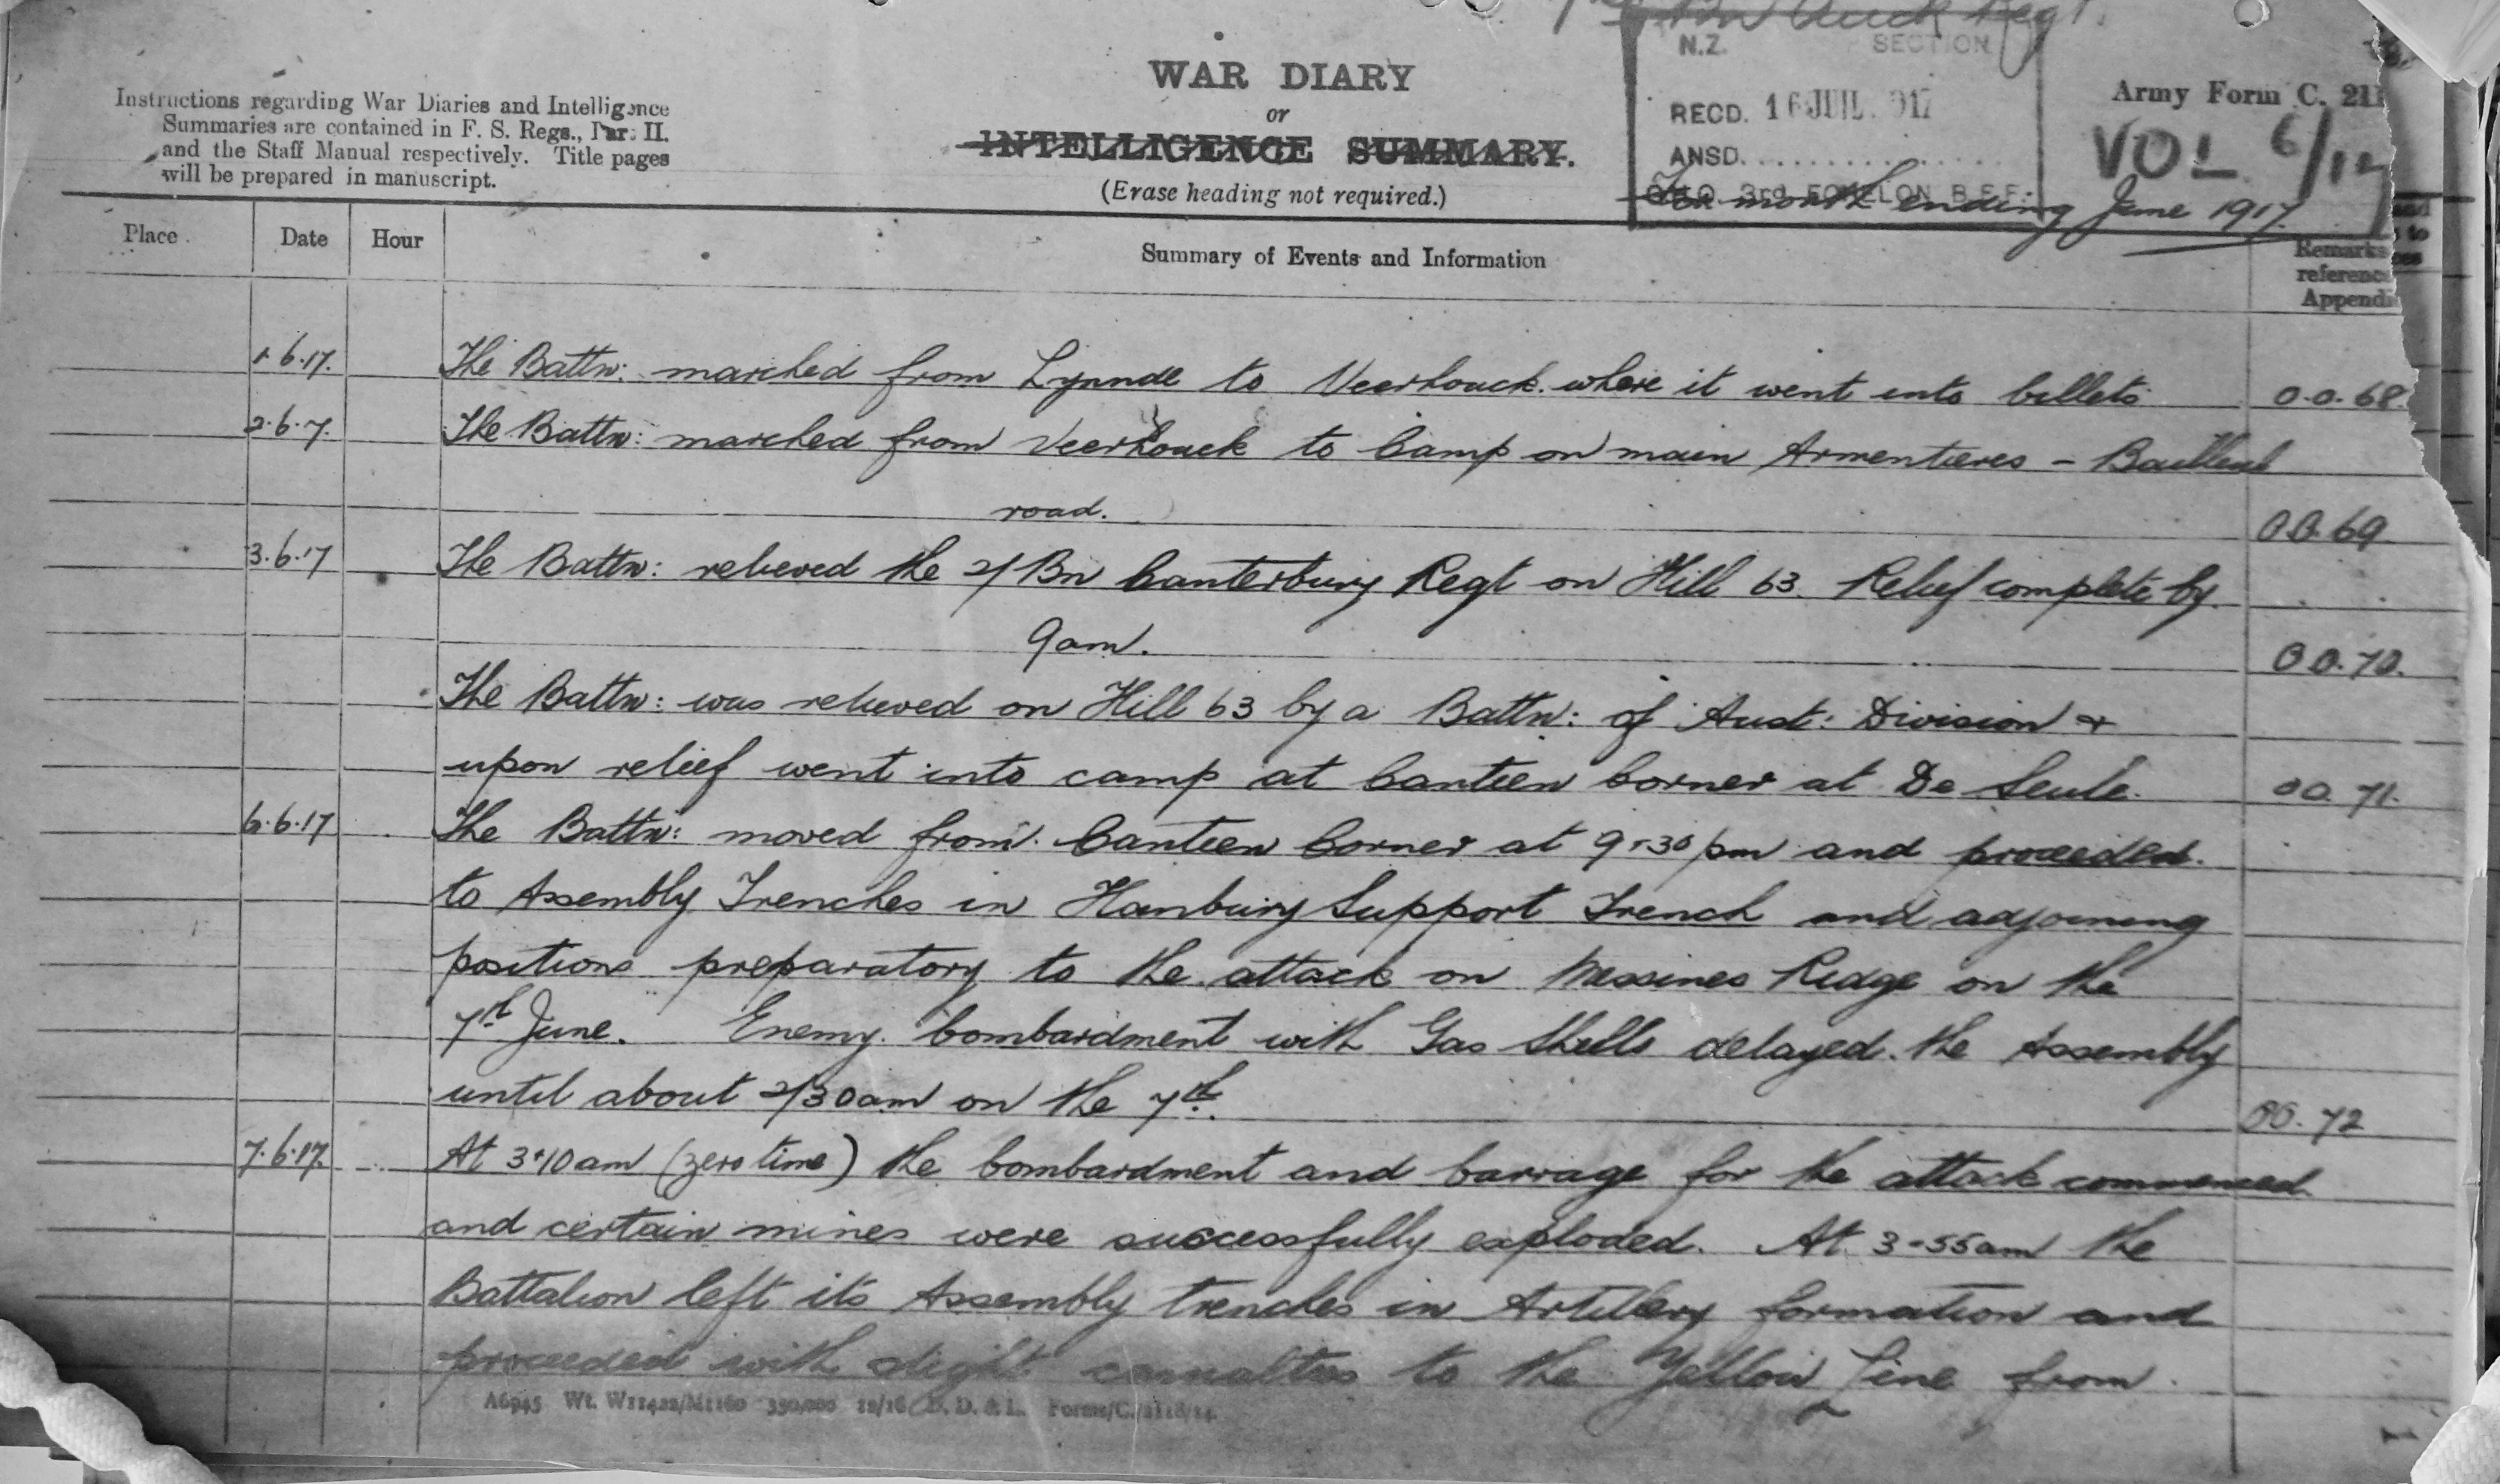 Bn Auck Regt.
N.Z. SECTION
WAR DIARY
or
INTELLIGENCE SUMMARY.
(Erase heading not required.)
Instructions regarding War Diaries and Intelligence
Summaries are contained in F. S. Regs., Part II.
and the Staff Manual respectively. Title pages
will be prepared in manuscript.
RECD. 16 JUL. 917
ANSD.
3rd ECHELON B.E.F.
For month ending June 1917.
Army Form C. 211
VOL 6/12
Place Date Hour Summary of Events and Information Remarks
reference
Appendi
1.6.17. The Battn: marched from Lynnde to Veerhouck. where it went into billets O.O. 68.
2.6.7. The Battn: marched from Veerhouck to Camp on main Armentieres - Bailleul
road. O.O. 69
3.6.17 The Battn: relieved the 2/Bn Canterbury Regt on Hill 63. Relief complete by
9am. O.O. 70.
The Battn: was relieved on Hill 63 by a Battn: of Aust: Division &
upon relief went into camp at Canteen Corner at De Seule. OO. 71.
6.6.17 The Battn: moved from Canteen Corner at 9-30 pm and proceeded
to Assembly Trenches in Hanbury Support Trench and adjoining
positions preparatory to the attack on Messines Ridge on the
7th June. Enemy bombardment with Gas Shells delayed the Assembly
until about 2/30am on the 7th. OO. 72
7.6.17. At 3.10am (zero time) the bombardment and barrage for the attack commenced
and certain mines were successfully exploded. At 3-55am the
Battalion left its Assembly trenches in Artillery formation and
proceeded with slight casualties to the Yellow Line from
A6945 Wt. W11422/M1160 350,000 12/16 D. D. & L. Forms/C./2118/14.